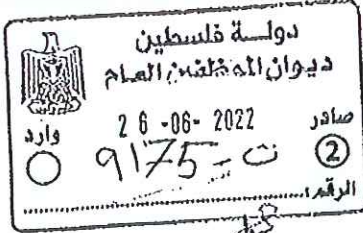 دولة فلسطين
ديوان الموظفين العام
صادر 26-06-2022 وارد
2 9175-ت
الرقم: